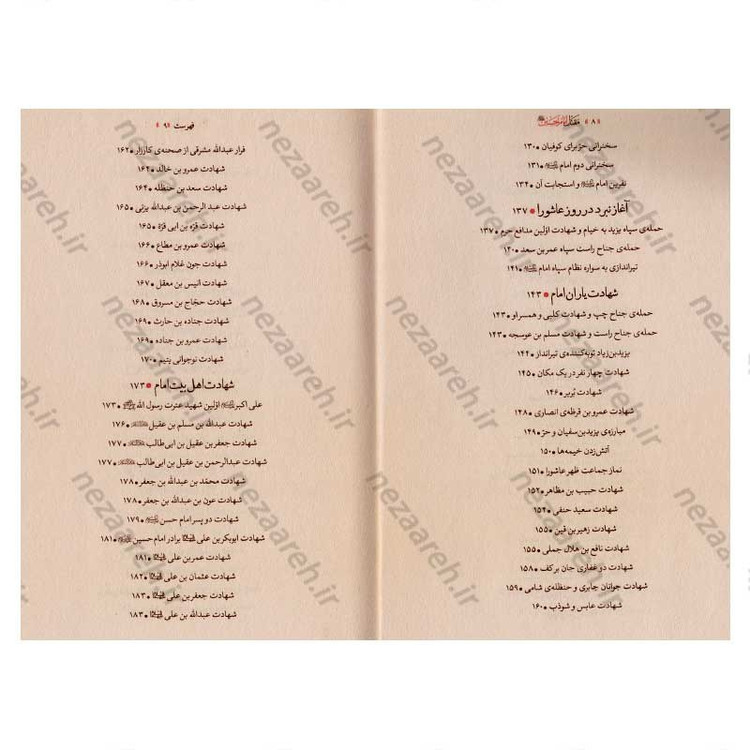 «۸» مقتل امام حسین
سخنرانی حرّ برای کوفیان • ۱۳۰
سخنرانی دوم امام • ۱۳۱
نفرین امام و استجابت آن • ۱۳۴
آغاز نبرد در روز عاشورا • ۱۳۷
حمله‌ی سپاه یزید به خیام و شهادت اوّلین مدافع حرم • ۱۳۷
حمله‌ی جناح راست سپاه عمر بن سعد • ۱۴۰
تیراندازی به سواره نظام سپاه امام • ۱۴۱
شهادت یاران امام • ۱۴۳
حمله‌ی جناح چپ و شهادت کلبی و همسر او • ۱۴۳
حمله‌ی جناح راست و شهادت مسلم بن عوسجه • ۱۴۳
یزید بن زیاد توبه‌کننده‌ی تیرانداز • ۱۴۴
شهادت چهار نفر در یک مکان • ۱۴۵
شهادت بُریر • ۱۴۶
شهادت عمرو بن قرظه‌ی انصاری • ۱۴۸
مبارزه‌ی یزید بن سفیان و حرّ • ۱۴۹
آتش زدن خیمه‌ها • ۱۵۰
نماز جماعت ظهر عاشورا • ۱۵۱
شهادت حبیب بن مظاهر • ۱۵۲
شهادت سعید حنفی • ۱۵۴
شهادت زهیر بن قین • ۱۵۵
شهادت نافع بن هلال جملی • ۱۵۵
شهادت دو غفاری جان برکف • ۱۵۸
شهادت جوانان جابری و حنظله‌ی شامی • ۱۵۹
شهادت عابس و شوذب • ۱۶۰
فهرست «۹»
فرار عبدالله مشرقی از صحنه‌ی کارزار • ۱۶۲
شهادت عمرو بن خالد • ۱۶۴
شهادت سعد بن حنظله • ۱۶۴
شهادت عبد الرحمن بن عبدالله یزنی • ۱۶۵
شهادت قرّة بن ابی قرّة • ۱۶۵
شهادت عمرو بن مطاع • ۱۶۶
شهادت جون غلام ابوذر • ۱۶۶
شهادت انیس بن معقل • ۱۶۷
شهادت حجّاج بن مسروق • ۱۶۸
شهادت جناده بن حارث • ۱۶۹
شهادت عمرو بن جناده • ۱۶۹
شهادت نوجوانی یتیم • ۱۷۰
شهادت اهل بیت امام • ۱۷۳
علی اکبر اوّلین شهید عترت رسول الله • ۱۷۳
شهادت عبدالله بن مسلم بن عقیل • ۱۷۶
شهادت جعفر بن عقیل بن ابی طالب • ۱۷۷
شهادت عبدالرحمن بن عقیل بن ابی طالب • ۱۷۷
شهادت محمّد بن عبدالله بن جعفر • ۱۷۸
شهادت عون بن عبدالله بن جعفر • ۱۷۸
شهادت دو پسر امام حسن • ۱۷۹
شهادت ابوبکر بن علی برادر امام حسین • ۱۸۱
شهادت عمر بن علی • ۱۸۱
شهادت عثمان بن علی • ۱۸۲
شهادت جعفر بن علی • ۱۸۳
شهادت عبدالله بن علی • ۱۸۳
nezaareh.ir